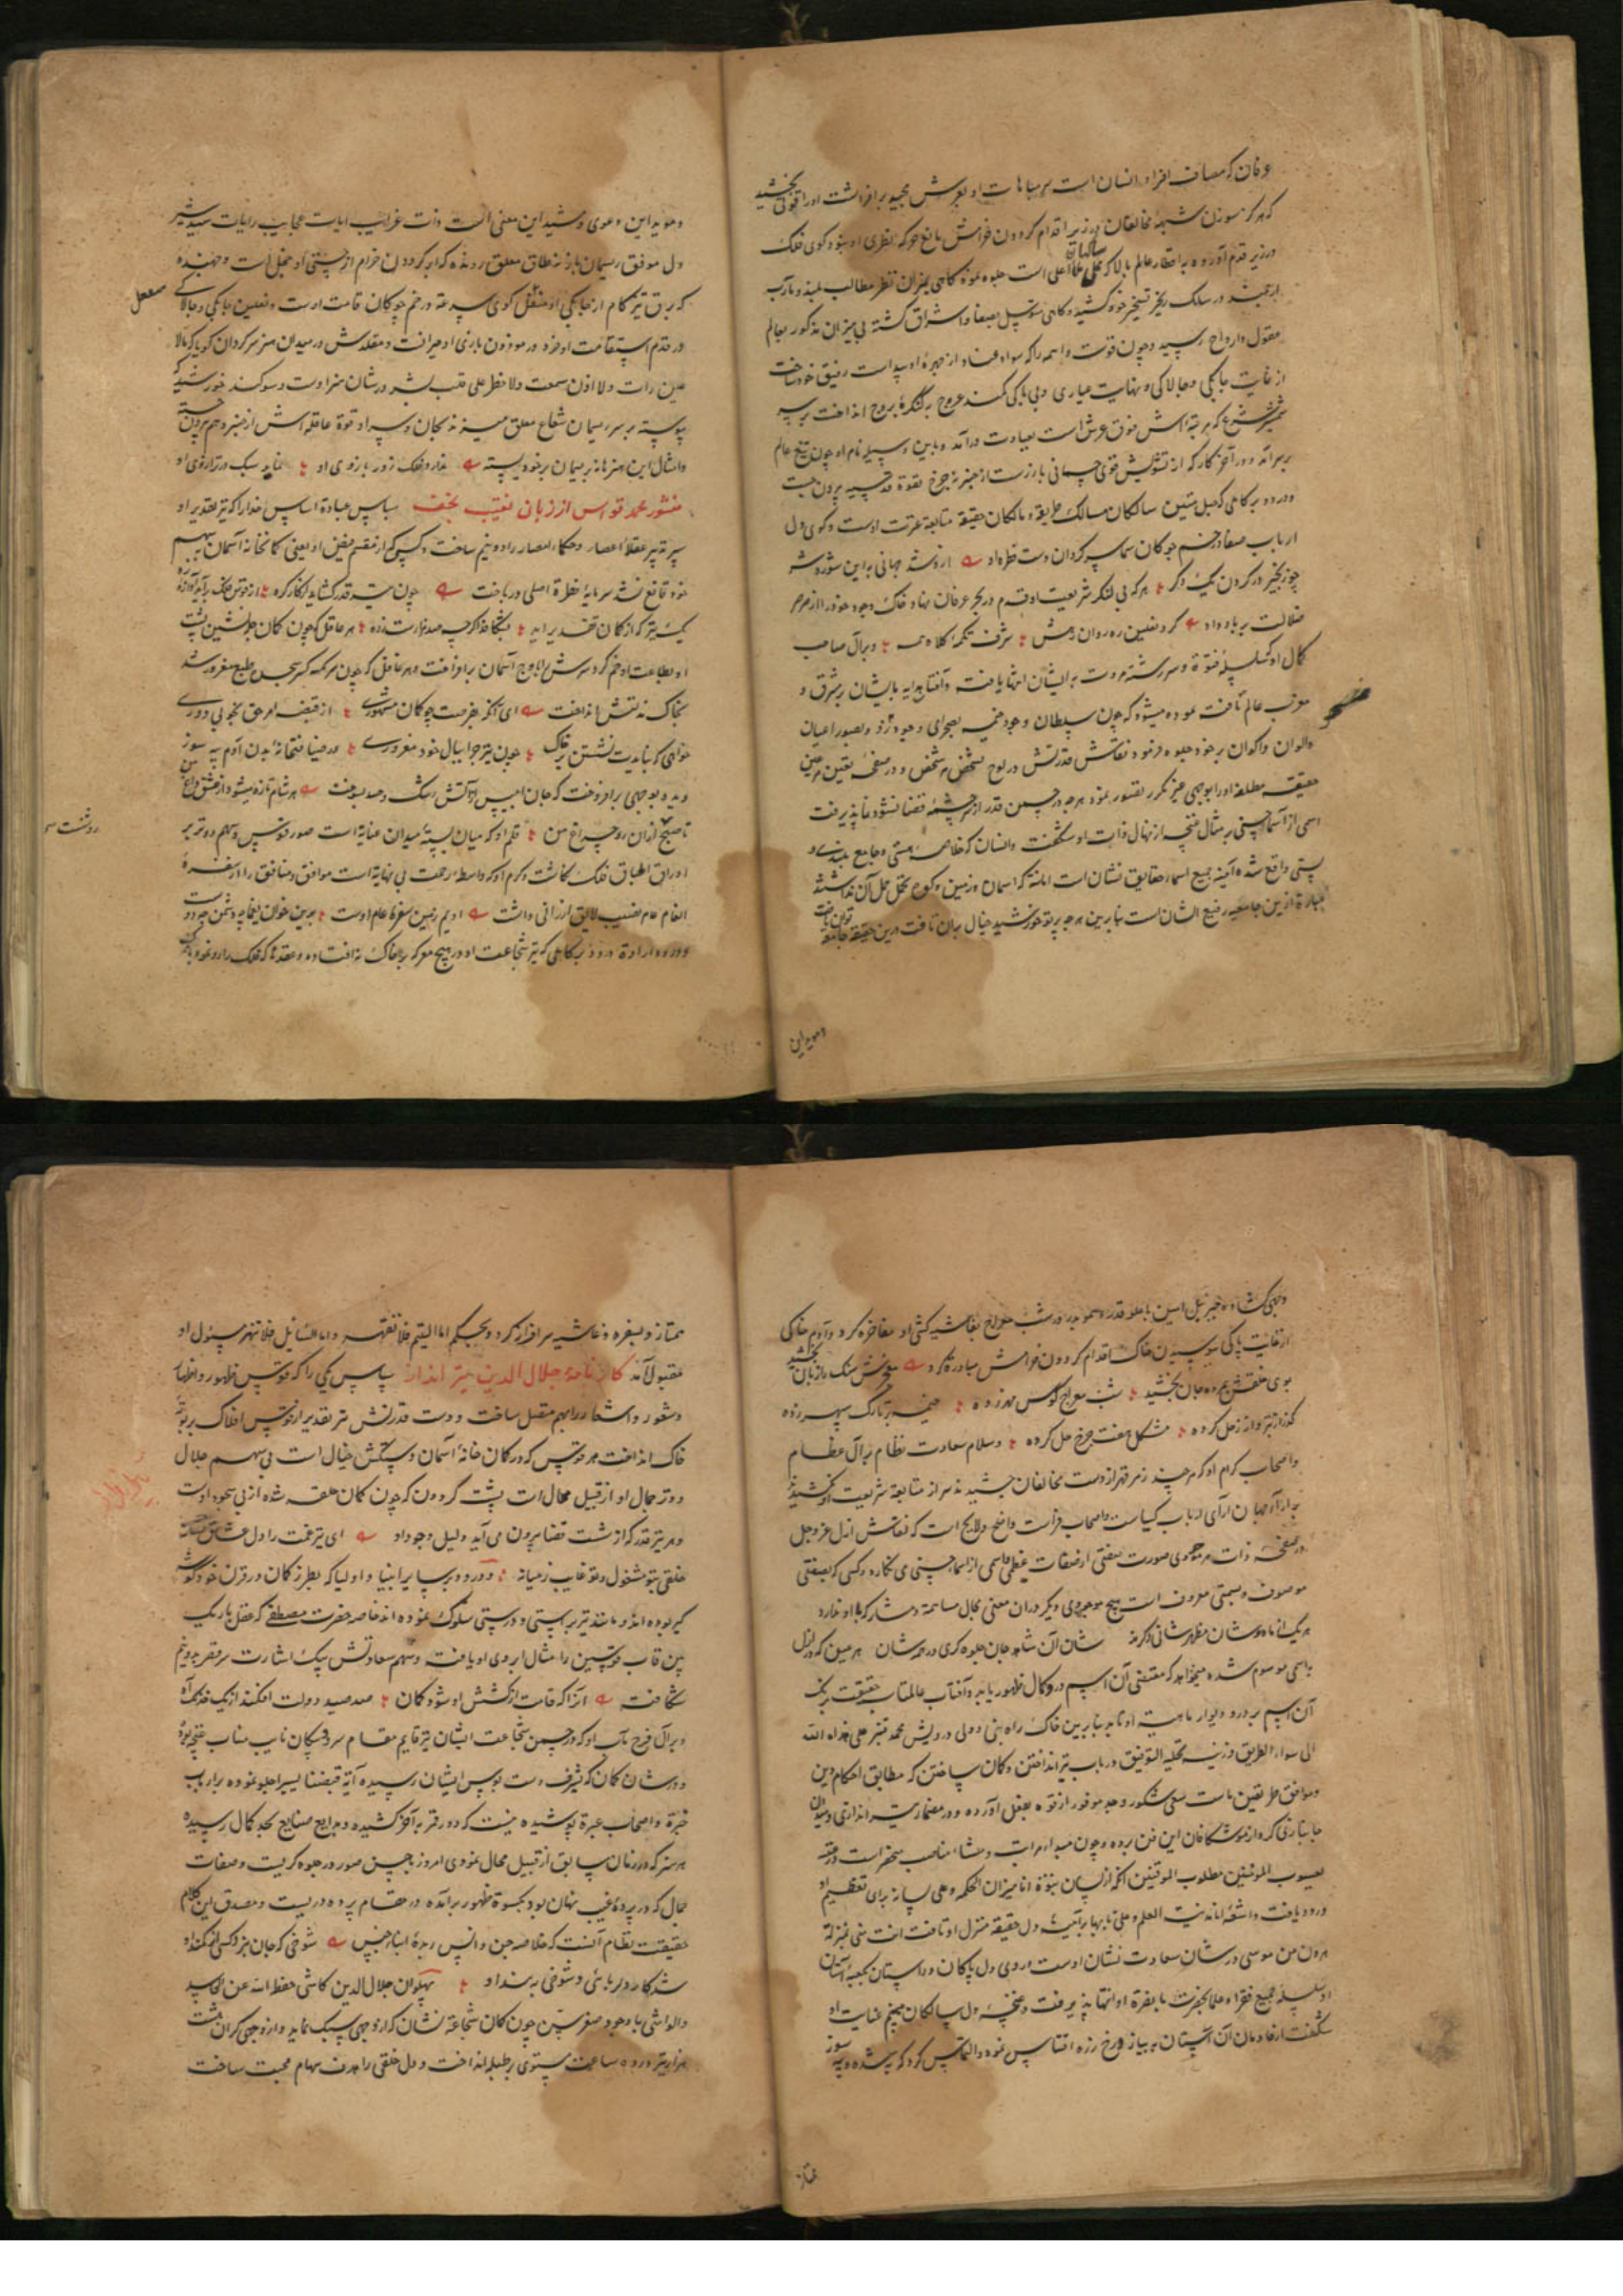 عرفان که مصاف افراد انسان است سر مباهات او بعرش مجید بر افراشت او را قوتی بخشید
که هر کز سوزن شبههٔ مخالفان در زیر اقدام کردون خرامش مانع حرکه نظری او نبود و کوی فلک
در زیر قدم آورده به اقطار عالم بالا که محل ملأ اعلی است جلوه نموده کاهی بمیزان نظر مطالب بلند و مآرب
ارجمند در سلک تسخیر خود کشیده و کاهی بتوسل بصفا و اشراق کشته بی میزان مذکور بعالم
عقول و ارواح رسید و چون قوت واهمه را که سواد فساد از چهرهٔ او پیداست رفیق خود ساخت
از غایت چابکی و چالاکی و نهایت عیاری و بی باکی کمند عروج بر کنکرهٔ بروج انداخت
شرع که مرتبه اش فوق عرش است بعیادت در آمد و باین وسیله نام او چون تیغ عالم
بر سر آمد و در آخر کار که از تشویش قوی جسمانی باز رست از چنبرهٔ چرخ بقوة قدسیه بیرون جست
و درود بر کاملی که حبل متین سالکان مسالک طریقه و مالکان حقیقة متابعة عترت اوست و کوی دل
ارباب صفا در خم چوکان سما سر کردان دست قطره او از رشته جهانی به این شور و شر
چو زنجیر در کردن یک دکر هر که بی لنکر شریعت او قدم در بحر عرفان نهاد خاک وجود خود را از صرصر
ضلالت بر باد داد کرد نعلین ره روان رهش شرف تکمهٔ کلاه مه و بر آل صاحب
کمال او که سلسلهٔ فتوة و سر رشته مروت به ایشان انتها یافته و آفتاب هدایه بایشان بر شرق و
مغرب عالم تافت نموده میشود که چون سلطان وجود خیمه بصحرای وجود زد و بصور اعیان
و الوان و اکوان بر خود جلوه فرمود نقاش قدرتش در لوح تشخص هر شخص و در صفحهٔ تعین هر عین
حقیقه مطلقه او را بوجهی غیر مکرر تصویر نمود هر چه در چمن قدر از سر چشمهٔ قضا نشو و نما پذیرفت
اسمی از اسما حسنی بر مثال غنچه از نهال ذات او شکفت و انسان که خلاصهٔ هستی و جامع بلندی و
پستی واقع شده آینه جمیع اسما و حقایق نشان است امانة که آسمان و زمین و کوه تحمل حمل آن نداشتند
عبارة ازین جامعیه رفیع الشان است بنا برین هر چه پرتو خورشید خیال بران تافت درین حقیقه جامعه توان یافت
و موید این
و موید این دعوی و مشید این معنی است ذات غرایب ایات عجایب رایات
دل موفق ریسمان باز نه طاق معلق رونده که ابر کردون خرام از چستی او خجل است و جهنده
که برق تیز کام از چابکی او منفعل کوی سرعة در خم چوکان قامت اوست و نعلین چابکی و چالاکی
منفعل
در قدم استقامت او خرد در موزون بازی او حیران و مقلدش در میدان هنر سر کردان کویا که لا
عین رات و لا اذن سمعت و لا خطر علی قلب بشر در شان هنر اوست و سوکند خورشید که
پیوسته بر سر ریسمان شعاع معلق میزند بجان و سر او قوة عاقله اش از چنبر وهم بیرون جسته
و امثال این هنرها از بر ریسمان بر خود بسته ندارد فلک زور بازوی او نماید سبک در ترازوی او
منشور محمد قواس از زبان نقیب نجف سپاس عبادة اساس خدا را که تیر تقدیر او
سپر تدبیر عقلاء اعصار و حکماء امصار را دو نیم ساخت و کسی کز از مقسم فیض او یعنی کمانخانه آسمان به سهم
خود قانع نشد سرمایهٔ فطرة اصلی در باخت چون تیر قدر کشاید از کنار کره از قوس فلک بر آید آوازهٔ زه
یک تیر که از کمان تقدیر آید نشکافد اکر چه صد هزارست زره هر عاقل که چون کمان چله نشین پشت
او بطاعت او خم کرد سرش را باوج آسمان بر افراخت و هر غافل که چون سرکه کسر سجل طبع مغرور شد
بخاک مذلتش انداخت ای آنکه بفرصت چو کمان مشهوری از قبضه امر حق بخوبی دوری
خواهی که نبایدت نشستن بر خاک چون تیر چرا ببال خود مغروری و در ضیافتخانهٔ بدن آدم پیه سوز
دیده بوجهی بر افروخت که جان ابلیس از آتش رشک و حسد بسوخت هر شام تازه میشود از عشق داغ من
روشنست سر
تا صبح ازان رو چراغ من قلم او که میان بستهٔ میدان عنایة است صور قوس و سهم دو تیر بر
اوراق اطباق فلک نکاشت و کرم او که واسطهٔ رحمت بی نهایة است موافق و منافق را از سفرهٔ
انعام عام نصیب لایق ارزانی داشت ادیم زمین سفرهٔ عام اوست برین خوان یغما چه دشمن چه دوست
و درود از ارادة درود بر کاملی که تیر شجاعت او در هیچ معرکه بر خاک نه افتاده و عقدها که فلک را رو نمود به
وجهی کشاده جبرئیل امین با علو قدر و سمو بدر در شب معراج بغاشیه کشی او مفاخره کرد و آدم خاکی
از غایت پاکی ببوسیدن خاک اقدام کردون خرامش مبادرة کرد معجزش سنک را زبان بخشید
بوی خلقش بمرده جان بخشید شب معراج کوس مهر زده خیمه بر تارک سپهر زده
کوز از تیر و از زحل کرده مشکل هفت چرخ حل کرده و سلام سعادت نظام بر آل عظام
و اصحاب کرام او که هر چند زهر قهر از دست مخالفان چشیدند سر از متابعة شریعت او نکشیدند
بر آراء جهان آرای ارباب کیاست و اصحاب فراست واضح و لایح است که نقاش ازل عز و جل
در صفحهٔ ذات هر موجودی صورت صفتی از صفات عظمی و اسمی از اسماء حسنی می نکارد و کسی که بصفتی
موصوف و بسمتی معروف است هیچ موجودی دیکر دران معنی مجال مساهمة و مشارکة با او ندارد
هر یک از ماه وشان مظهر شانی دکرند شان آن شاهد جان جلوه کری در همه شان هر عین که در ازل
باسمی موسوم شده میخواهد که مقتضی آن اسم در و کمال ظهور یابد و آفتاب عالمتاب حقیقت برنک
آن اسم بر در و دیوار ماهیة او تابد بنا برین خاک راه نبی و ولی درویش محمد قنبر علی هداه الله
الی سواء الطریق و زینه بحلیه التوفیق در باب تیر انداختن و کمان ساختن که مطابق احکام دین
و موافق طریقین ماست سعی مشکور و جهد موفور از قوه بفعل آورده و در مضمار تیر اندازی و میدان
جانبازی کرو از موشکافان این فن برده و چون مبداء مراتب و منشاء مناصب سخر است در عتبه
یعسوب المومنین مطلوب الموقنین آنکه از لسان نبوة انا میزان الحکمه و علی لسانه برای تعظیم او
ورود یافت و اشعهٔ انا مدینة العلم و علی بابها بر آینهٔ دل حقیقة منزل او تافت انت منی بمنزلة
هارون من موسی در شان سعادت نشان اوست روی دل پاکان و راستان بکعبهٔ آستان
او سلسلهٔ جمیع فقرا و علما بحضرت با بقرة او انتها پذیرفت و غنچهٔ دل سالکان بنسیم عنایت او
شکفت از خادمان آن آستان به نیاز و رخ زرد اقتباس نمود و التماس کرد که بر شده و پیه سوز
ممتاز
ممتاز و بسفره و غاشیه سرافراز کرد و بحکم اما الیتیم فلا تقهر و اما السائل فلا تنهر مسئول او
مقبول آمد کارنامهٔ جلال الدین تیر انداز سپاس یکی را که قوس ظهور و اظهار
و شعور و اشعار را بهم متصل ساخت و دست قدرتش تیر تقدیر از قوس افلاک بر بوتهٔ
خاک انداخت هر قوس که در کمان خانهٔ آسمان و سرکش خیال است بی سهم جلال
و وتر جمال او از قبیل محال است پشت کردون که چون کمان حلقه شده از پی سجود اوست
و هر تیر قدر که از شست قضا بیرون می آید دلیل وجود او ای تیر غمت را دل عشاق نشانه
خلقی بتو مشغول و تو غایب ز میانه و درود بر سایر انبیا و اولیا که بطرز کمان در قرن خود کوشه
کیر بوده اند و مانند تیر براستی و درستی سلوک نموده اند خاصه حضرت مصطفی که عقل باریک
بین قاب قوسین را مثال ابروی او یافته و سهم سعادتش بیک اشارت سر قمر بدو نیم
شکافته آنرا که قامت از کشش او شود کمان صد صید دولت افکند از یک خدنک آه
و بر آل فرخ مآب او که در چمن شجاعت ایشان تیر قایم مقام سرو و پیکان نایب مناب غنچه بوده
و در شان کمان که بشرف دست بوس ایشان رسیده آیة قبضنا یسیرا جلوه نموده بر ارباب
خبرة و اصحاب عبرة پوشیده نیست که دور قمر به آخر کشیده و بدایع صنایع بحد کمال رسیده
هر سر که در زمان سابق از قبیل محال نمودی امروز باحسن صور در جلوه کریست و صفات
جمال که در پردهٔ غیب نهان بود بکسوة ظهور بر آمده در مقام پرده دریست و مصدق این کلام
حقیقت نظام آنست که خلاصه جن و انس زبدهٔ ابناء جنس شوخی که جان نبرد کسی از کمند او
شد کار دلربائی و شوخی به بند او پهلوان جلال الدین کاشی حفظه الله عن الحاسد
و الواشی با وجود صغر سن چون کمان شجاعة نشان که از وجهی سبک نماید و از وجهی کران هشت
هزار تیر در ده ساعت مستوی بر طبله انداخت و دل خلقی را هدف سهام محبت ساخت